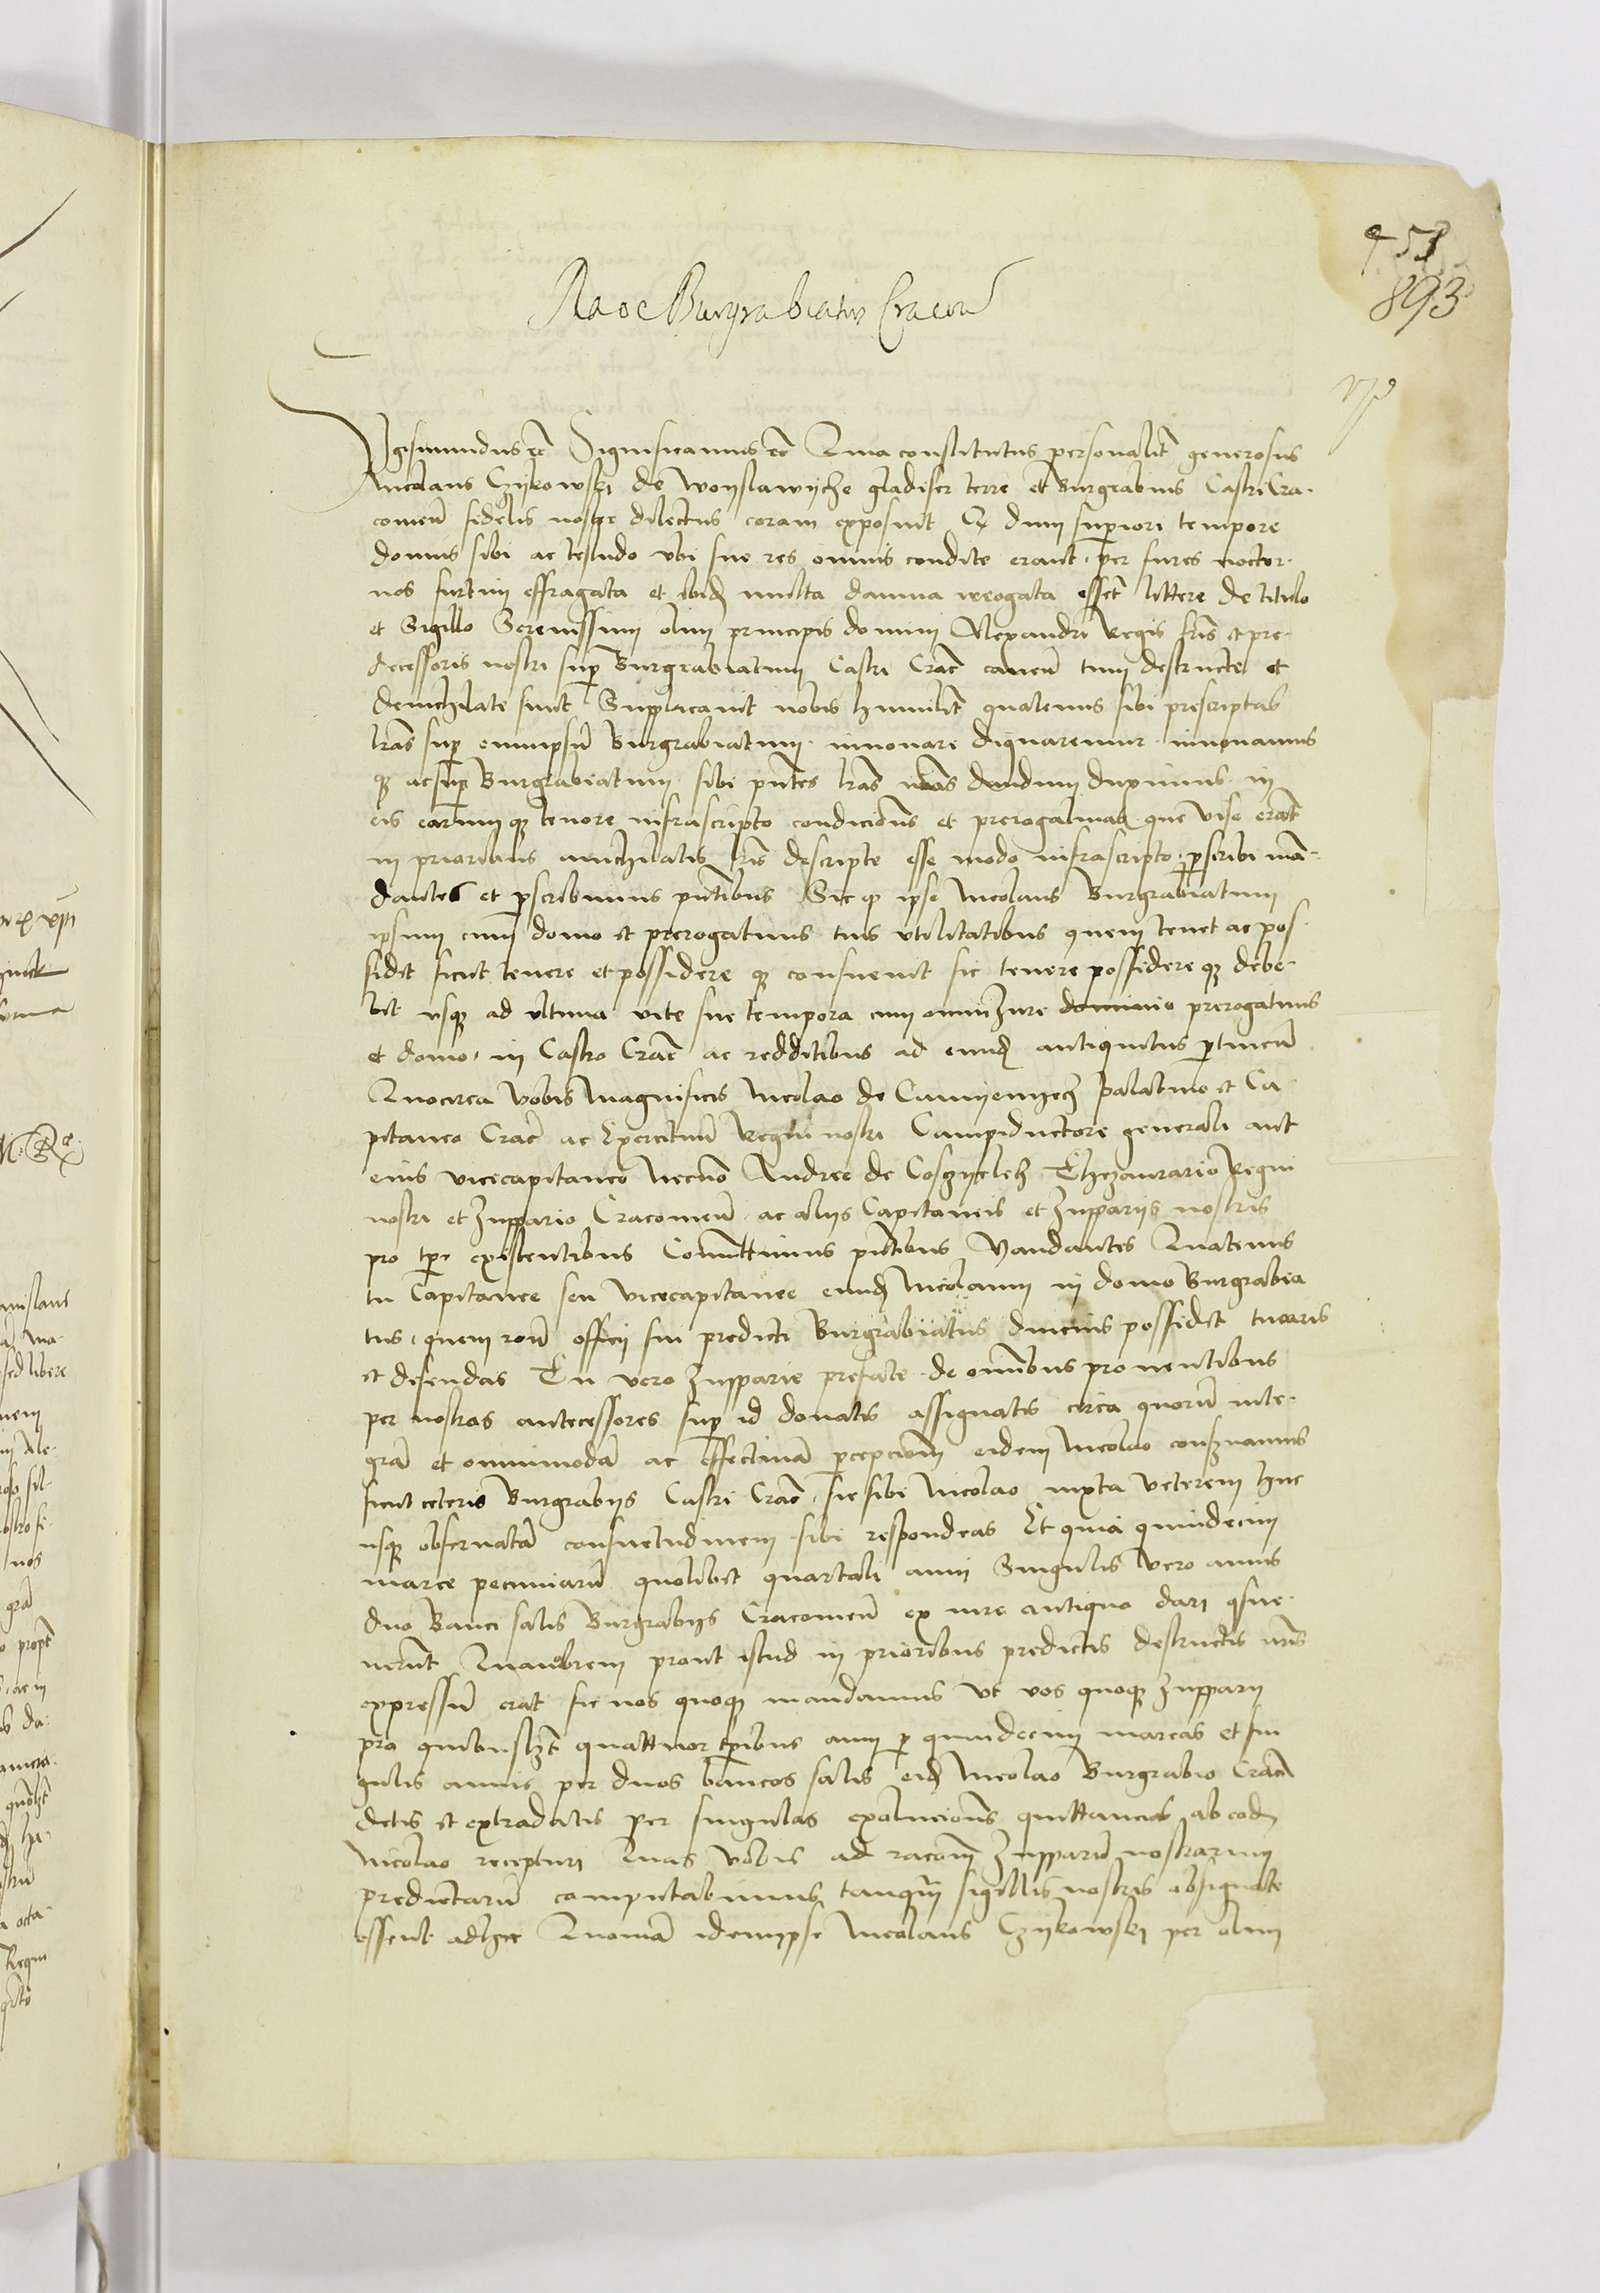 451
893
Burgrabiatus Cracovien
Sygismundus etc Significamus etc Quia constitutus personalit generosus
Nicolaus Czykowsky de Woyslawycze gladifer terre et Burgrabius Castri Cra-
covień fidelis noster dilectus coram exposuit Q dum superiori tempore
domus sibi ac testudo ubi sue res omnis condite erant per fures noctur-
nos furtim effragata et ibid multa damna irrogata esset littere de titulo
et Sigillo Serenissimi olim principis domini Alexandri Regis fris et pre-
decessoris nostri sup Burgrabiatum Castri Crac canen tum destructe et
denichilate sunt Supplicavit nobis humilit quatenus sibi prescriptas
lras sup eumipsu Burgrabiatum innovare dignaremur innovamus
q ac sup Burgrabiatum sibi pntes lras nras dandum duximus in
eis earumq tenore infrascripto condicions et prerogativas que vise erat
in prioribus annichilatis lris descripte esse modo infrascripto pscribi man-
dantes et pscribimus pntibus Sic q ipse Nicolaus Burgrabiatum
ipsum cum domo et prerogativis suis utilitatibus quem tenet ac pos-
sidet sicut tenere et possidere q consuevit sic tenere possidere q debe-
bit usq ad ultima vite sue tempora cum omni Jure dominio prerogativis
et domo in Castro Crac ac redditibus ad eund antiquitus ptinen
Quocirca vobis Magnificis Nicolao de Camyenyecz palatino et Ca-
pitaneo Crac ac Exercituu Regni nostri Campiductore generali aut
eius vicecapitaneo necno Andree de Coszyelecz Thezaurario Regni
nostri et Zuppario Cracovien ac alijs Capitaneis et Zupparijs nostris
pro tpe existentibus Committimus pntibus Mandantes Quatenus
tu Capitanee seu vicecapitanee eund Nicolaum in domo Burgrabia
tus quem roe officij sui predicti Burgrabiatus ducius possidet tuearis
et defendas Tu vero Zupparie prefate de omnibus proventibus
per nostros antecessores sup id donatis assignatis circa quoru inte-
gra et omnimoda ac effectiva pcepciom eidem Nicolao conservamus
sicut ceteris Burgrabijs Castri Crac sic sibi Nicolao iuxta veterem huc
usq observata consuetudinem sibi respondeas Et quia quindecim
marce pecuniaru quolibet quartali anni Singulis vero annis
duo Banci salis Burgrabijs Cracovien ex iure antiquo dari gsue-
verut Quaobrem prout istud in prioribus predictis destructis lris
expressu erat sic nos quoq mandamus ut vos quoq Zupparij
pro quibuslzt quattuor tpibus anni p quindecim marcas et sin
gulis annis per duos bancos salis eid Nicolao Burgrabio Crac
detis et extradatis per singulas exolucions quittancias ab eod
Nicolao recepturi Quas vobis ad racom Zupparu nostrarum
predictaru computabimus tanqm sigillis nostris obsignate
essent adhec Quoniam idemipse Nicolaus Czykowsky per olim